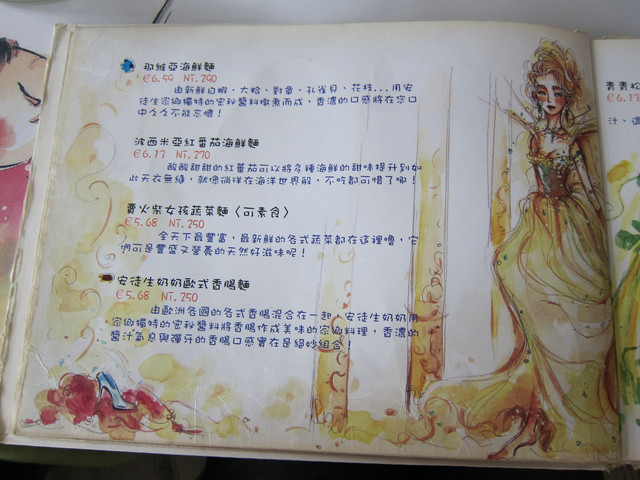 那維亞海鮮麵
€6.59 NT.290
由新鮮白蝦、大蛤、對章、孔雀貝、花枝...用安
徒生家鄉獨特的密秘醬料燉煮而成，香濃的口感將在您口
中久久不能忘懷！
波西米亞紅番茄海鮮麵
€6.17 NT.270
酸酸甜甜的紅番茄可以將多種海鮮的甜味提升到如
此天衣無縫，就像徜徉在海洋世界般，不吃都可惜了喔！
賣火柴女孩蔬菜麵〈可素食〉
€5.68 NT.250
全天下最豐富，最新鮮的各式蔬菜都在這裡嚕，它
們可是豐盛又營養的天然好滋味呢！
安徒生奶奶歐式香腸麵
€5.68 NT.250
由歐洲各國的各式香腸混合在一起，安徒生奶奶用
家鄉獨特的密秘醬料將香腸作成美味的家鄉料理，香濃的
醬汁氣息與彈牙的香腸口感實在是絕妙組合！
青青松
€6.17
汁，還